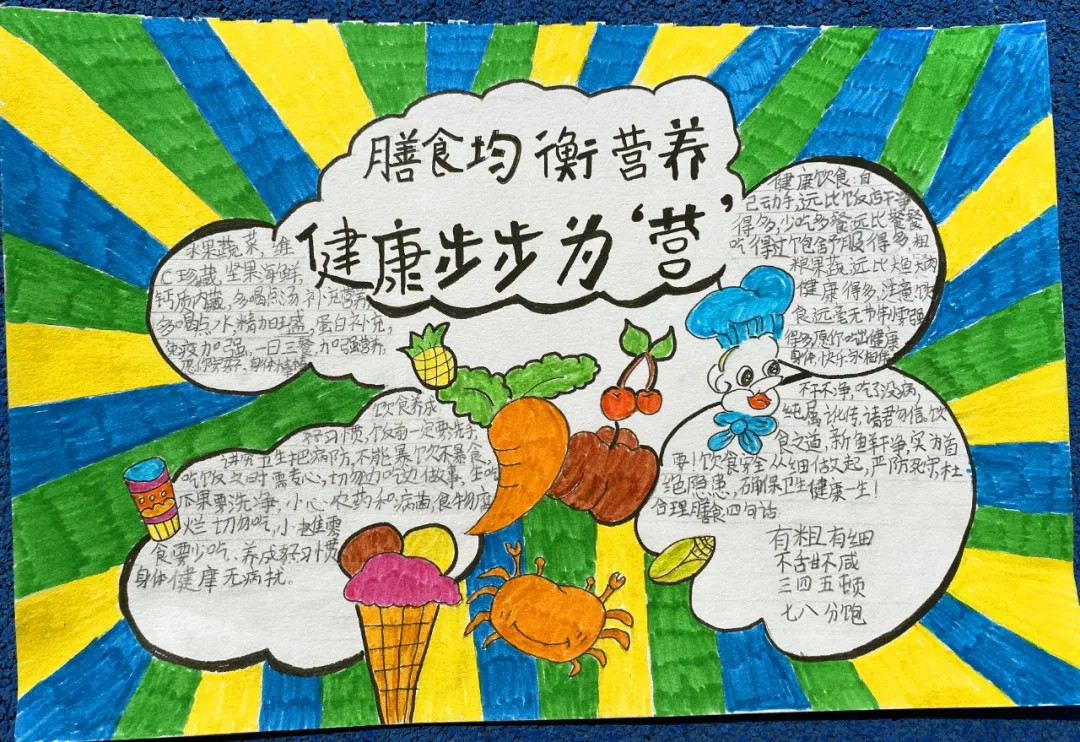 膳食均衡营养
健康步步为‘营’
水果蔬菜，维
C珍藏，坚果海鲜，
钙质内藏，多喝点汤补充营养
多喝点水，精力旺盛，蛋白补充，
免疫加强，一日三餐加强营养，
愿你安康，身体棒棒
健康饮食：自
己动手，远比饭店干净
得多，少吃多餐远比餐餐
吃得过饱舒服得多，粗
粮果蔬，远比大鱼大肉
健康得多，注意饮
食远毫无节制
得多愿你吃出健康
身体，快乐永相伴
饮食养成
好习惯，饭前一定要洗手，
讲究卫生把病防，不能暴饮不暴食，
吃饭之时需专心，切勿边吃边做事，生吃
瓜果要洗净，小心农药和病菌，食物腐
烂切勿吃，小摊零
食要少吃、养成好习惯
身体健康无病扰。
不干不净，吃了没病，
纯属讹传，请君勿信。饮
食之道，新鲜干净，实为首
要！饮食安全从细做起，严防死守杜
绝隐患，确保卫生健康一生！
合理膳食四句话
有粗有细
不甜不咸
三四五顿
七八分饱